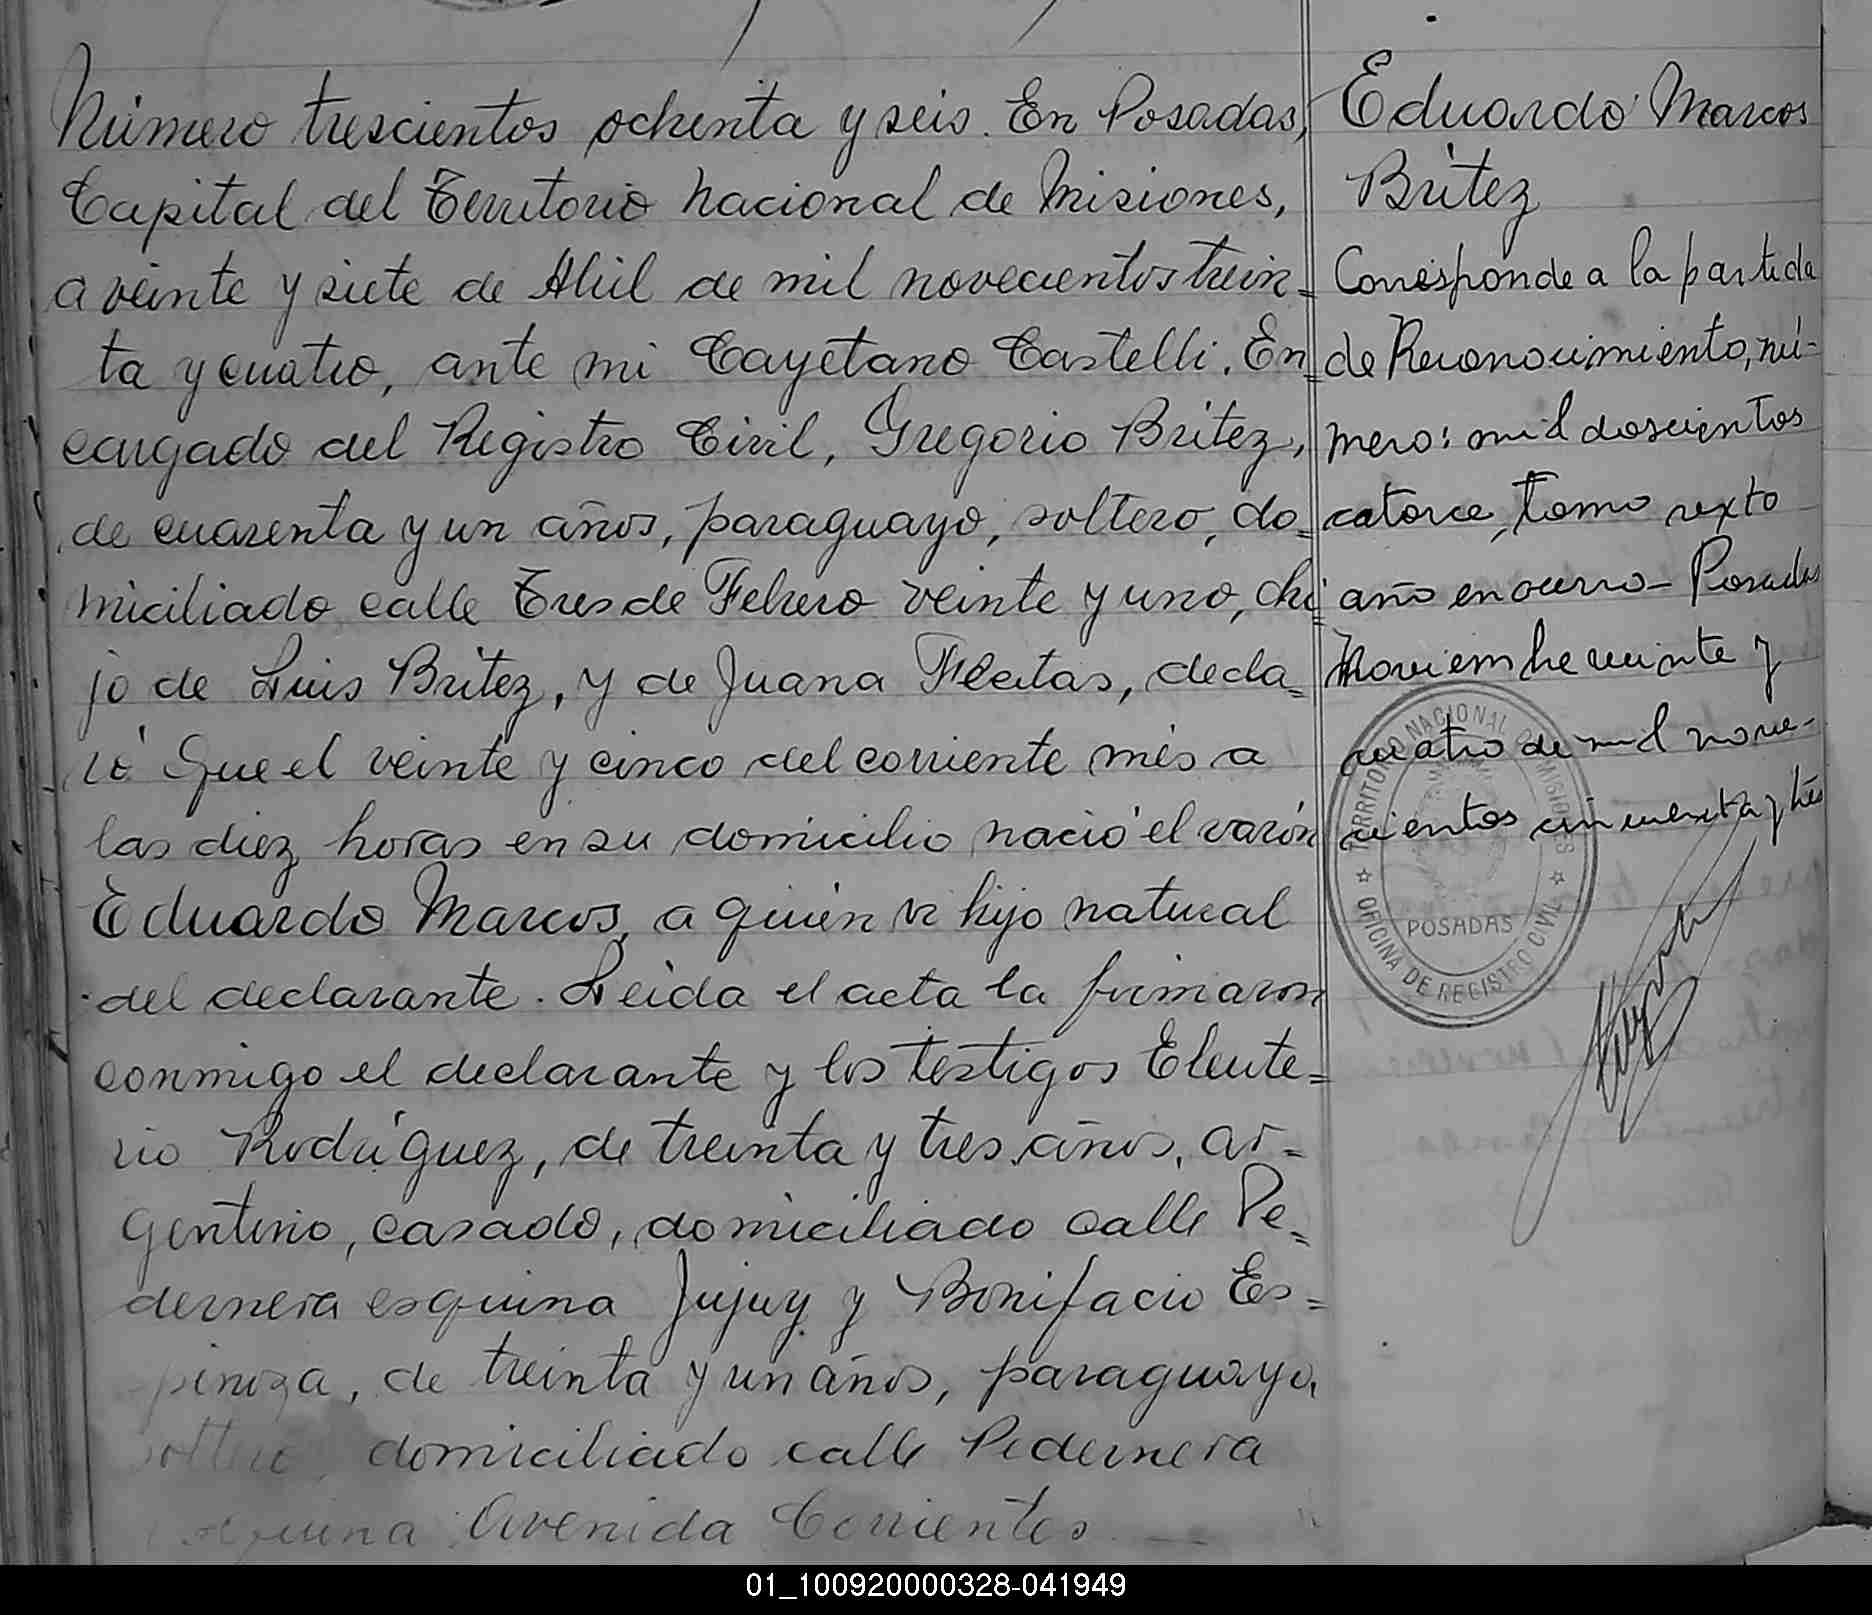 Número trescientos ochenta y seis. En Posadas,
Capital del Territorio Nacional de Misiones,
a veinte y siete de Abril de mil novecientos trein=
ta y cuatro, ante mi Cayetano Castelli, En=
cargado del Registro Civil, Gregorio Britez,
de cuarenta y un años, paraguayo, soltero, do=
miciliado calle Tres de Febrero veinte y uno, hi=
jo de Luis Britez, y de Juana Fleitas, decla=
ró Que el veinte y cinco del corriente més a
las diez horas en su domicilio nació el varón
Eduardo Marcos, a quién vi hijo natural
del declarante. Leida el acta la firmaron
conmigo el declarante y los testigos Eleute=
rio Rodríguez, de treinta y tres años, ar=
gentino, casado, domiciliado calle Pe=
dernera esquina Jujuy y Bonifacio Es=
pinoza, de treinta y un años, paraguayo,
soltero, domiciliado calle Pedernera
esquina Avenida Corrientes
Eduardo Marcos
Britez
Corresponde a la partida
de Reconocimiento, nú-
mero: mil doscientos
catorce, tomo sexto
año en curso - Posadas
Noviembre veinte y
cuatro de mil nove-
cientos cincuenta y tres
TERRITORIO NACIONAL DE MISIONES
POSADAS
OFICINA DE REGISTRO CIVIL
01_100920000328-041949